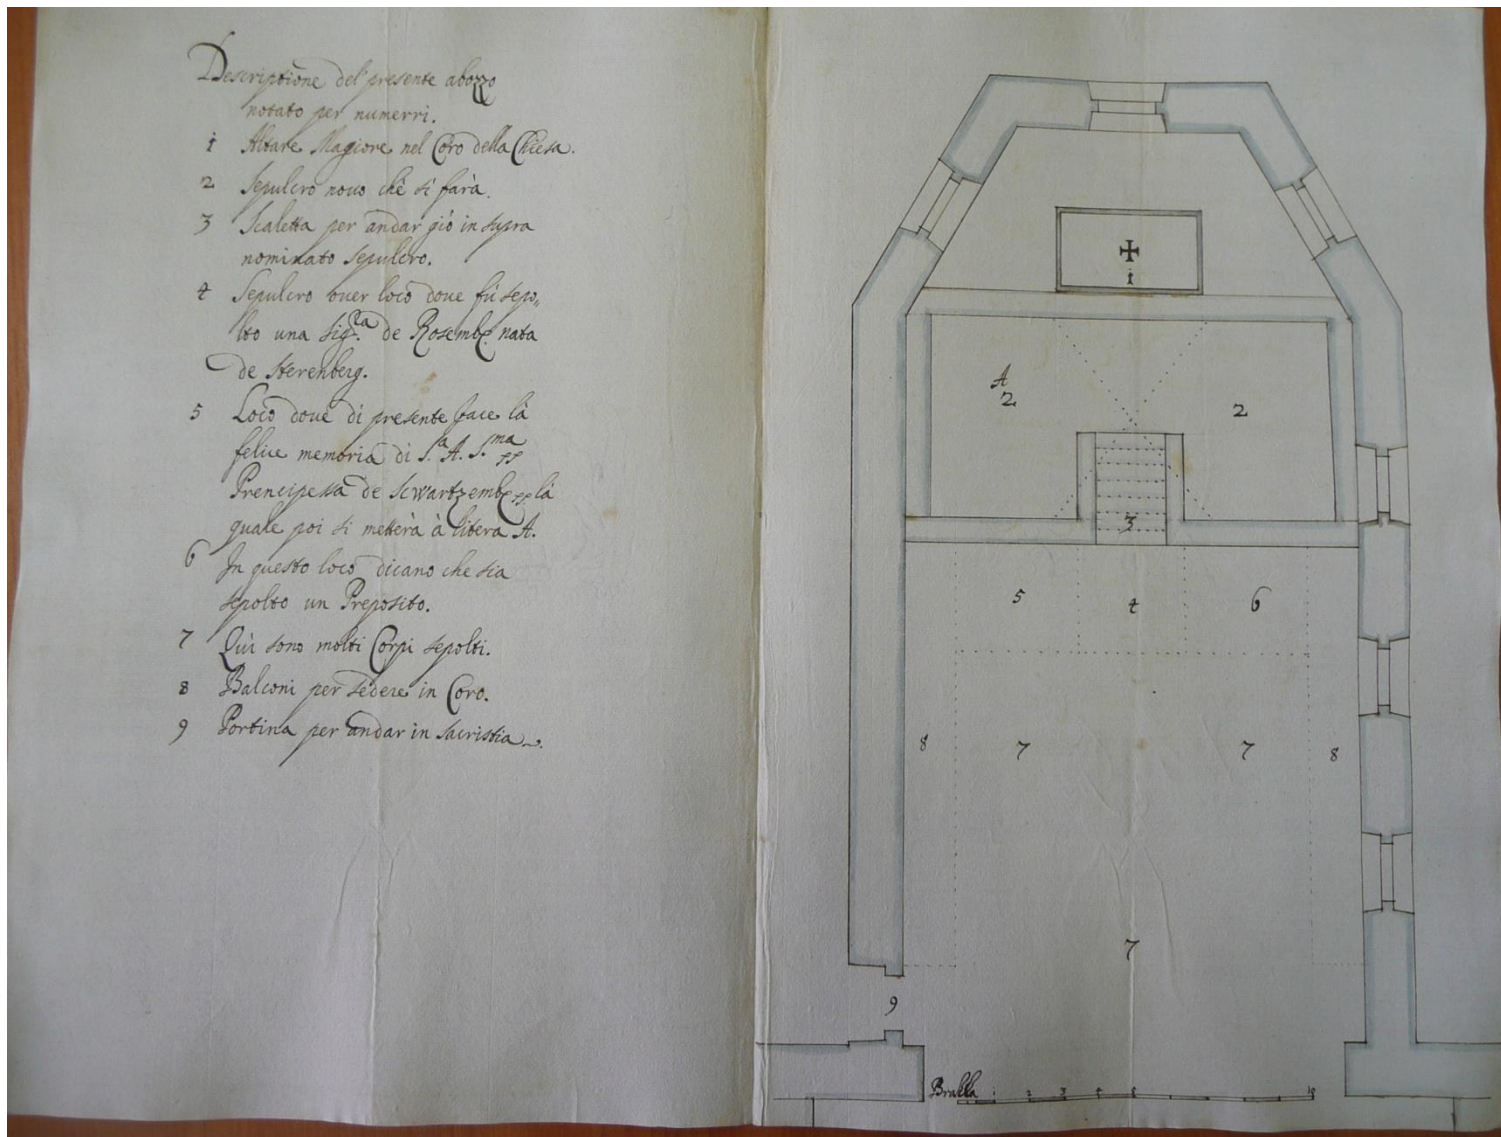 Descriptione del presente abozzo
notato per numerri.
1 Altare Magiore nel Coro della Chiesa.
2 Sepulcro nouo chè si farà.
3 Scaletta per andar giò in supra
nominato sepulcro.
4 Sepulcro ouer loco doue fú sepo„
lto una Sig.ra de Rosembg. nata
de Sterenberg.
5 Loco doue di presente jace là
felice memoria di S.a A. S.ma
Prencipessa de Scwartzemb là
quale poi si metterà à litera A.
6 In questo loco dicano che sia
sepolto un Preposito.
7 Quì sono molti Corpi sepolti.
8 Balconi per sedere in Coro.
9 Portina per andar in sacristia
1
A
2 2
3
5 4 6
8 7 7 8
7
9
1 2 3 4 5 10